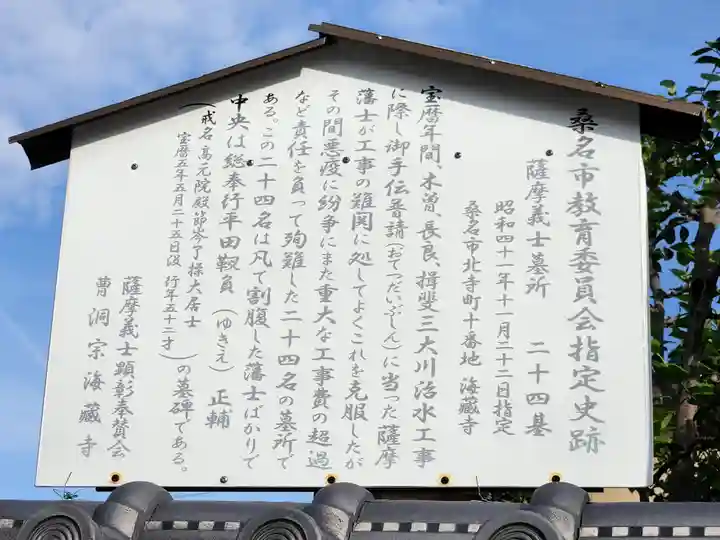 桑名市教育委員会指定史跡
薩摩義士墓所 二十四基
昭和四十一年十一月二十二日指定
桑名市北寺町十番地 海蔵寺
宝暦年間、木曽、長良、揖斐三大川治水工事
に際し御手伝普請(おてつだいぶしん)に当った薩摩
藩士が工事の難関に処してよくこれを克服したが
その間悪疫に紛争にまた重大な工事費の超過
など責任を負って殉難した二十四名の墓所で
ある。この二十四名は凡て割腹した藩士ばかりで
中央は総奉行平田靱負(ゆきえ)正輔
(戒名 高元院殿節岑了操大居士
宝暦五年五月二十五日歿 行年五十二才)の墓碑である。
薩摩義士顕彰奉賛会
曹洞宗海蔵寺